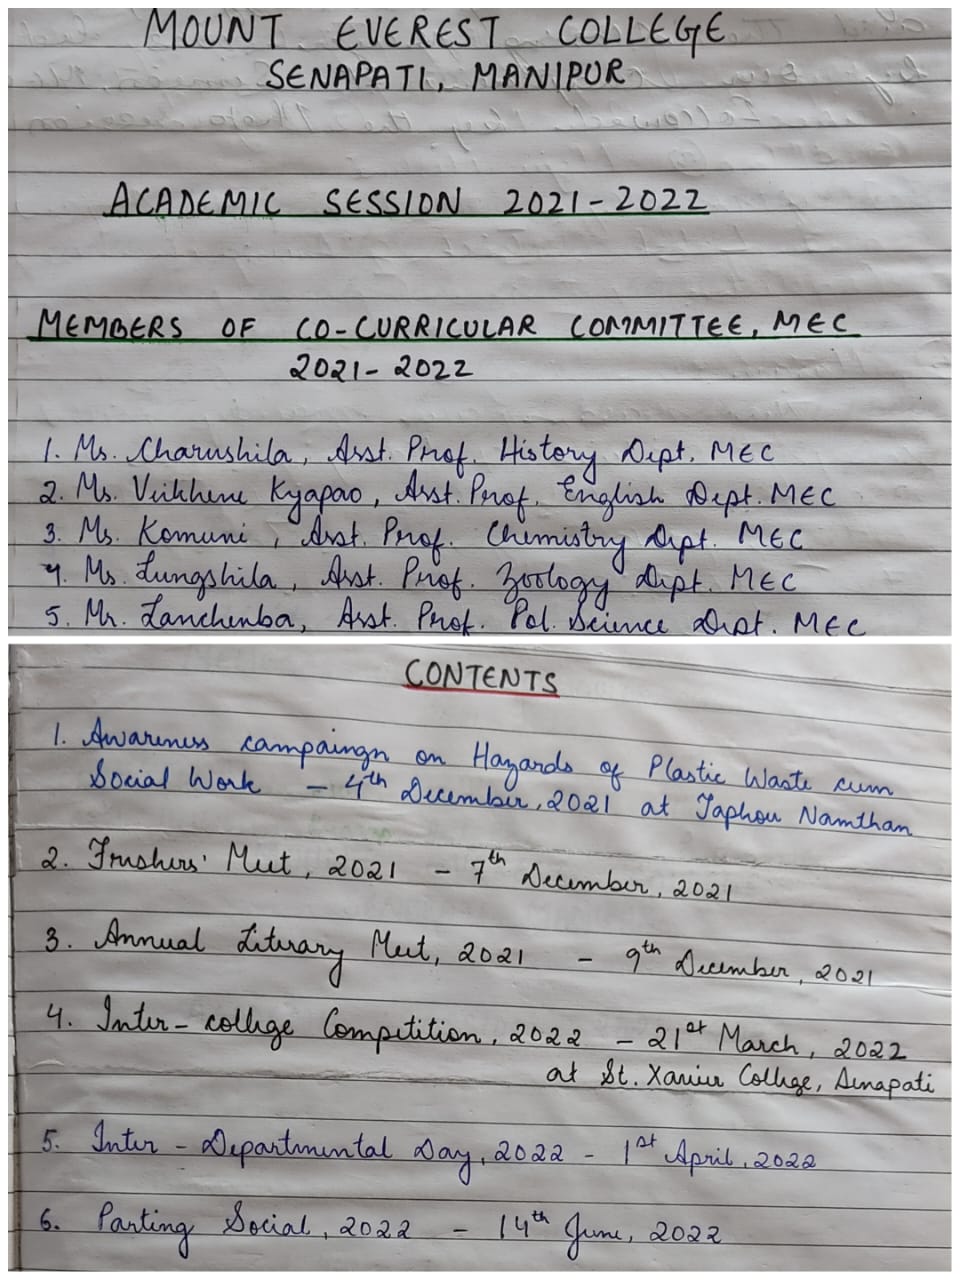 MOUNT EVEREST COLLEGE
SENAPATI, MANIPUR
ACADEMIC SESSION 2021-2022
MEMBERS OF CO-CURRICULAR COMMITTEE, MEC
2021-2022
1. Ms. Charushila, Asst. Prof. History Dept. MEC
2. Ms. Kyapao, Asst. Prof. English Dept. MEC
3. Ms. Komuni, Asst. Prof. Chemistry Dept. MEC
4. Ms. Lungshila, Asst. Prof. Zoology Dept. MEC
5. Mr. Lanchenba, Asst. Prof. Pol. Science Dept. MEC
CONTENTS
1. Awareness campaingn on Hazards of Plastic Waste cum
Social Work - 4th December, 2021 at Taphou Namthan
2. Freshers' Meet, 2021 - 7th December, 2021
3. Annual Literary Meet, 2021 - 9th December, 2021
4. Inter-college Competition, 2022 - 21st March, 2022
at St. Xavier College, Senapati
5. Inter-Departmental Day, 2022 - 1st April, 2022
6. Parting Social, 2022 - 14th June, 2022